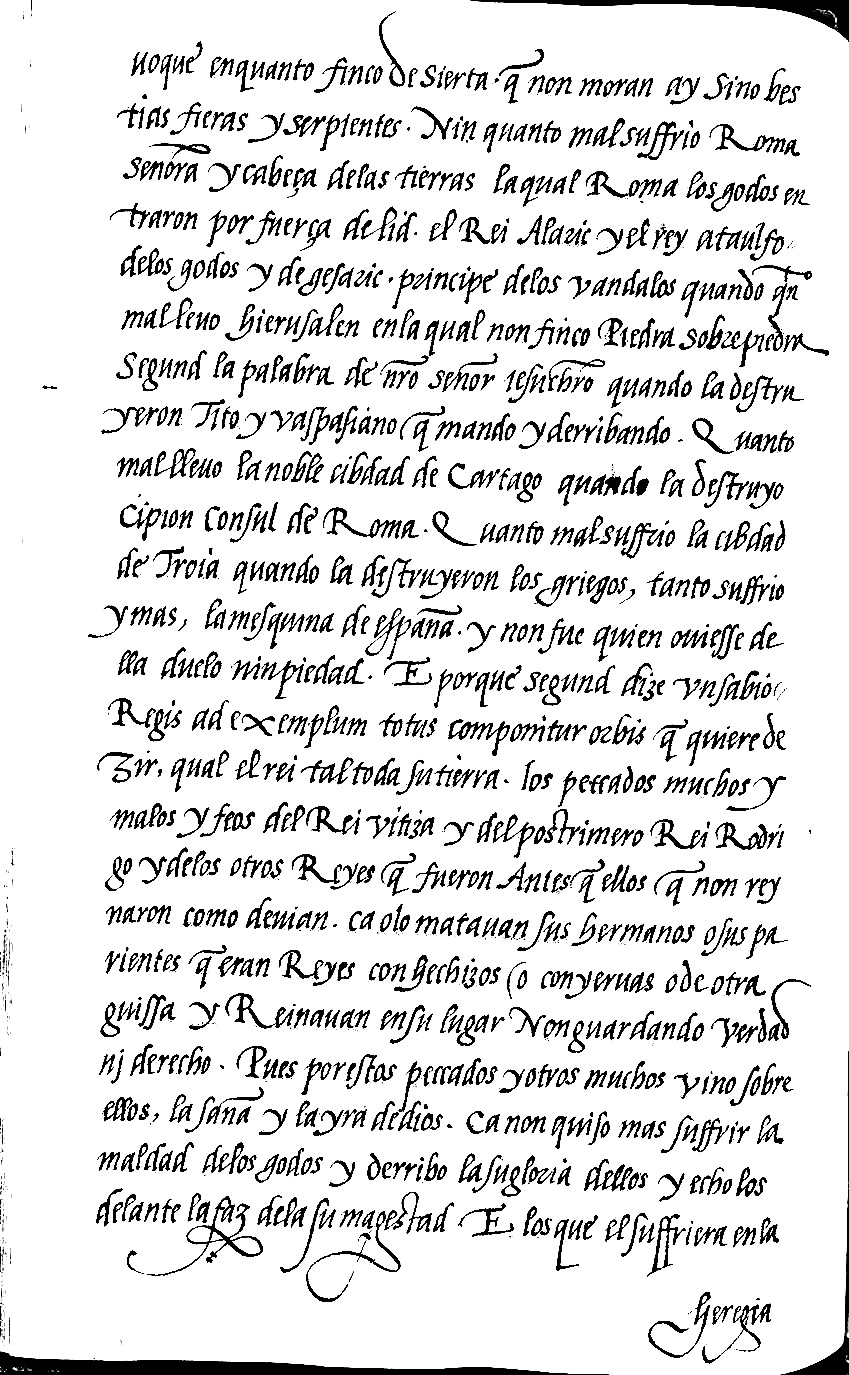 uoque enquanto finco desierta. q̃ non moran ay Sino bes
tias fieras y serpientes. Nin quanto mal suffrio Roma
Señora y cabeça delas tierras laqual Roma los godos en
traron por fuerça de lid. el Rei Alaric y el rey ataulfo.
delos godos y de gesaric. principe delos vandalos quando q̃n
mal leuo hierusalen enla qual non finco Piedra sobre piedra
Segund la palabra de nr̃o señor iesuchr̃o quando la destru
yeron Tito y vaspasiano (q̃ mando y derribando. Quanto
mal lleuo la noble cibdad de Cartago quando la destruyo
Cipion Consul de Roma. Quanto mal suffrio la cibdad
de Troia quando la destruyeron los griegos, tanto suffrio
y mas, la mesquina de españa. y non fue quien ouiesse de
lla duelo nin piedad. E porque segund dize vn sabio
Regis ad exemplum totus componitur orbis q̃ quiere de
Zir, qual el rei tal toda su tierra. los peccados muchos y
malos y feos del Rei vitiza y del postrimero Rei Rodri
go y delos otros Reyes q̃ fueron Antes q̃ ellos (q̃ non rey
naron como deuian. ca o lo matauan sus hermanos o sus pa
rientes q̃ eran Reyes con hechizos (o con yeruas o de otra
guissa y Reinauan en su lugar Non guardando verdad
nj derecho. Pues por estos peccados y otros muchos vino sobre
ellos, la saña y la yra de dios. Ca non quiso mas suffrir la
maldad delos godos y derribo la su gloria dellos y echo los
delante la faz dela su magestad E los que el suffriera en la
heregia